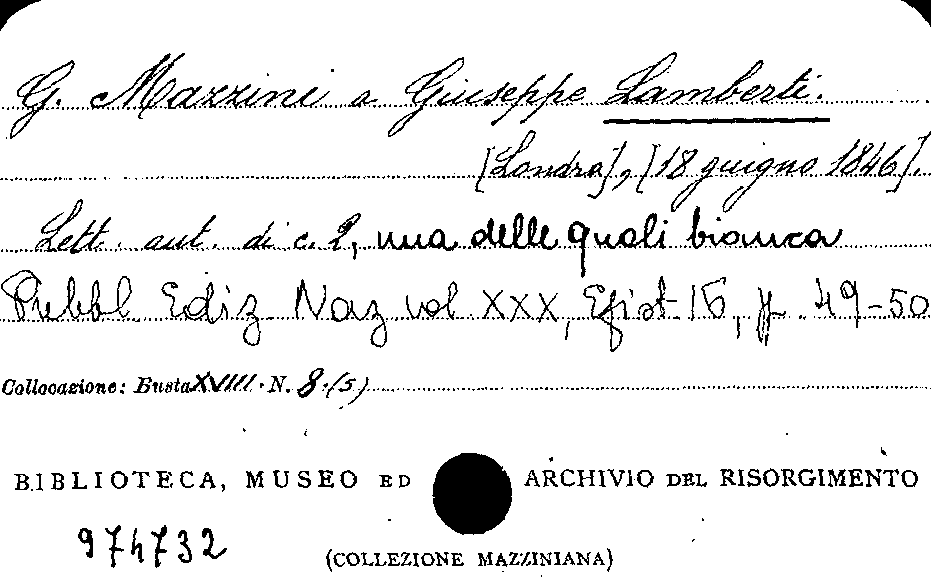 G. Mazzini a Giuseppe Lamberti.
[Londra], [18 giugno 1846].
Lett. aut. di c. 2, una delle quali bianca
Pubbl. Ediz Naz vol XXX, Epist 16, p. 49-50
Collocazione: Busta XVIII. N. 8.(5)
BIBLIOTECA, MUSEO ED ARCHIVIO DEL RISORGIMENTO
974732
(COLLEZIONE MAZZINIANA)